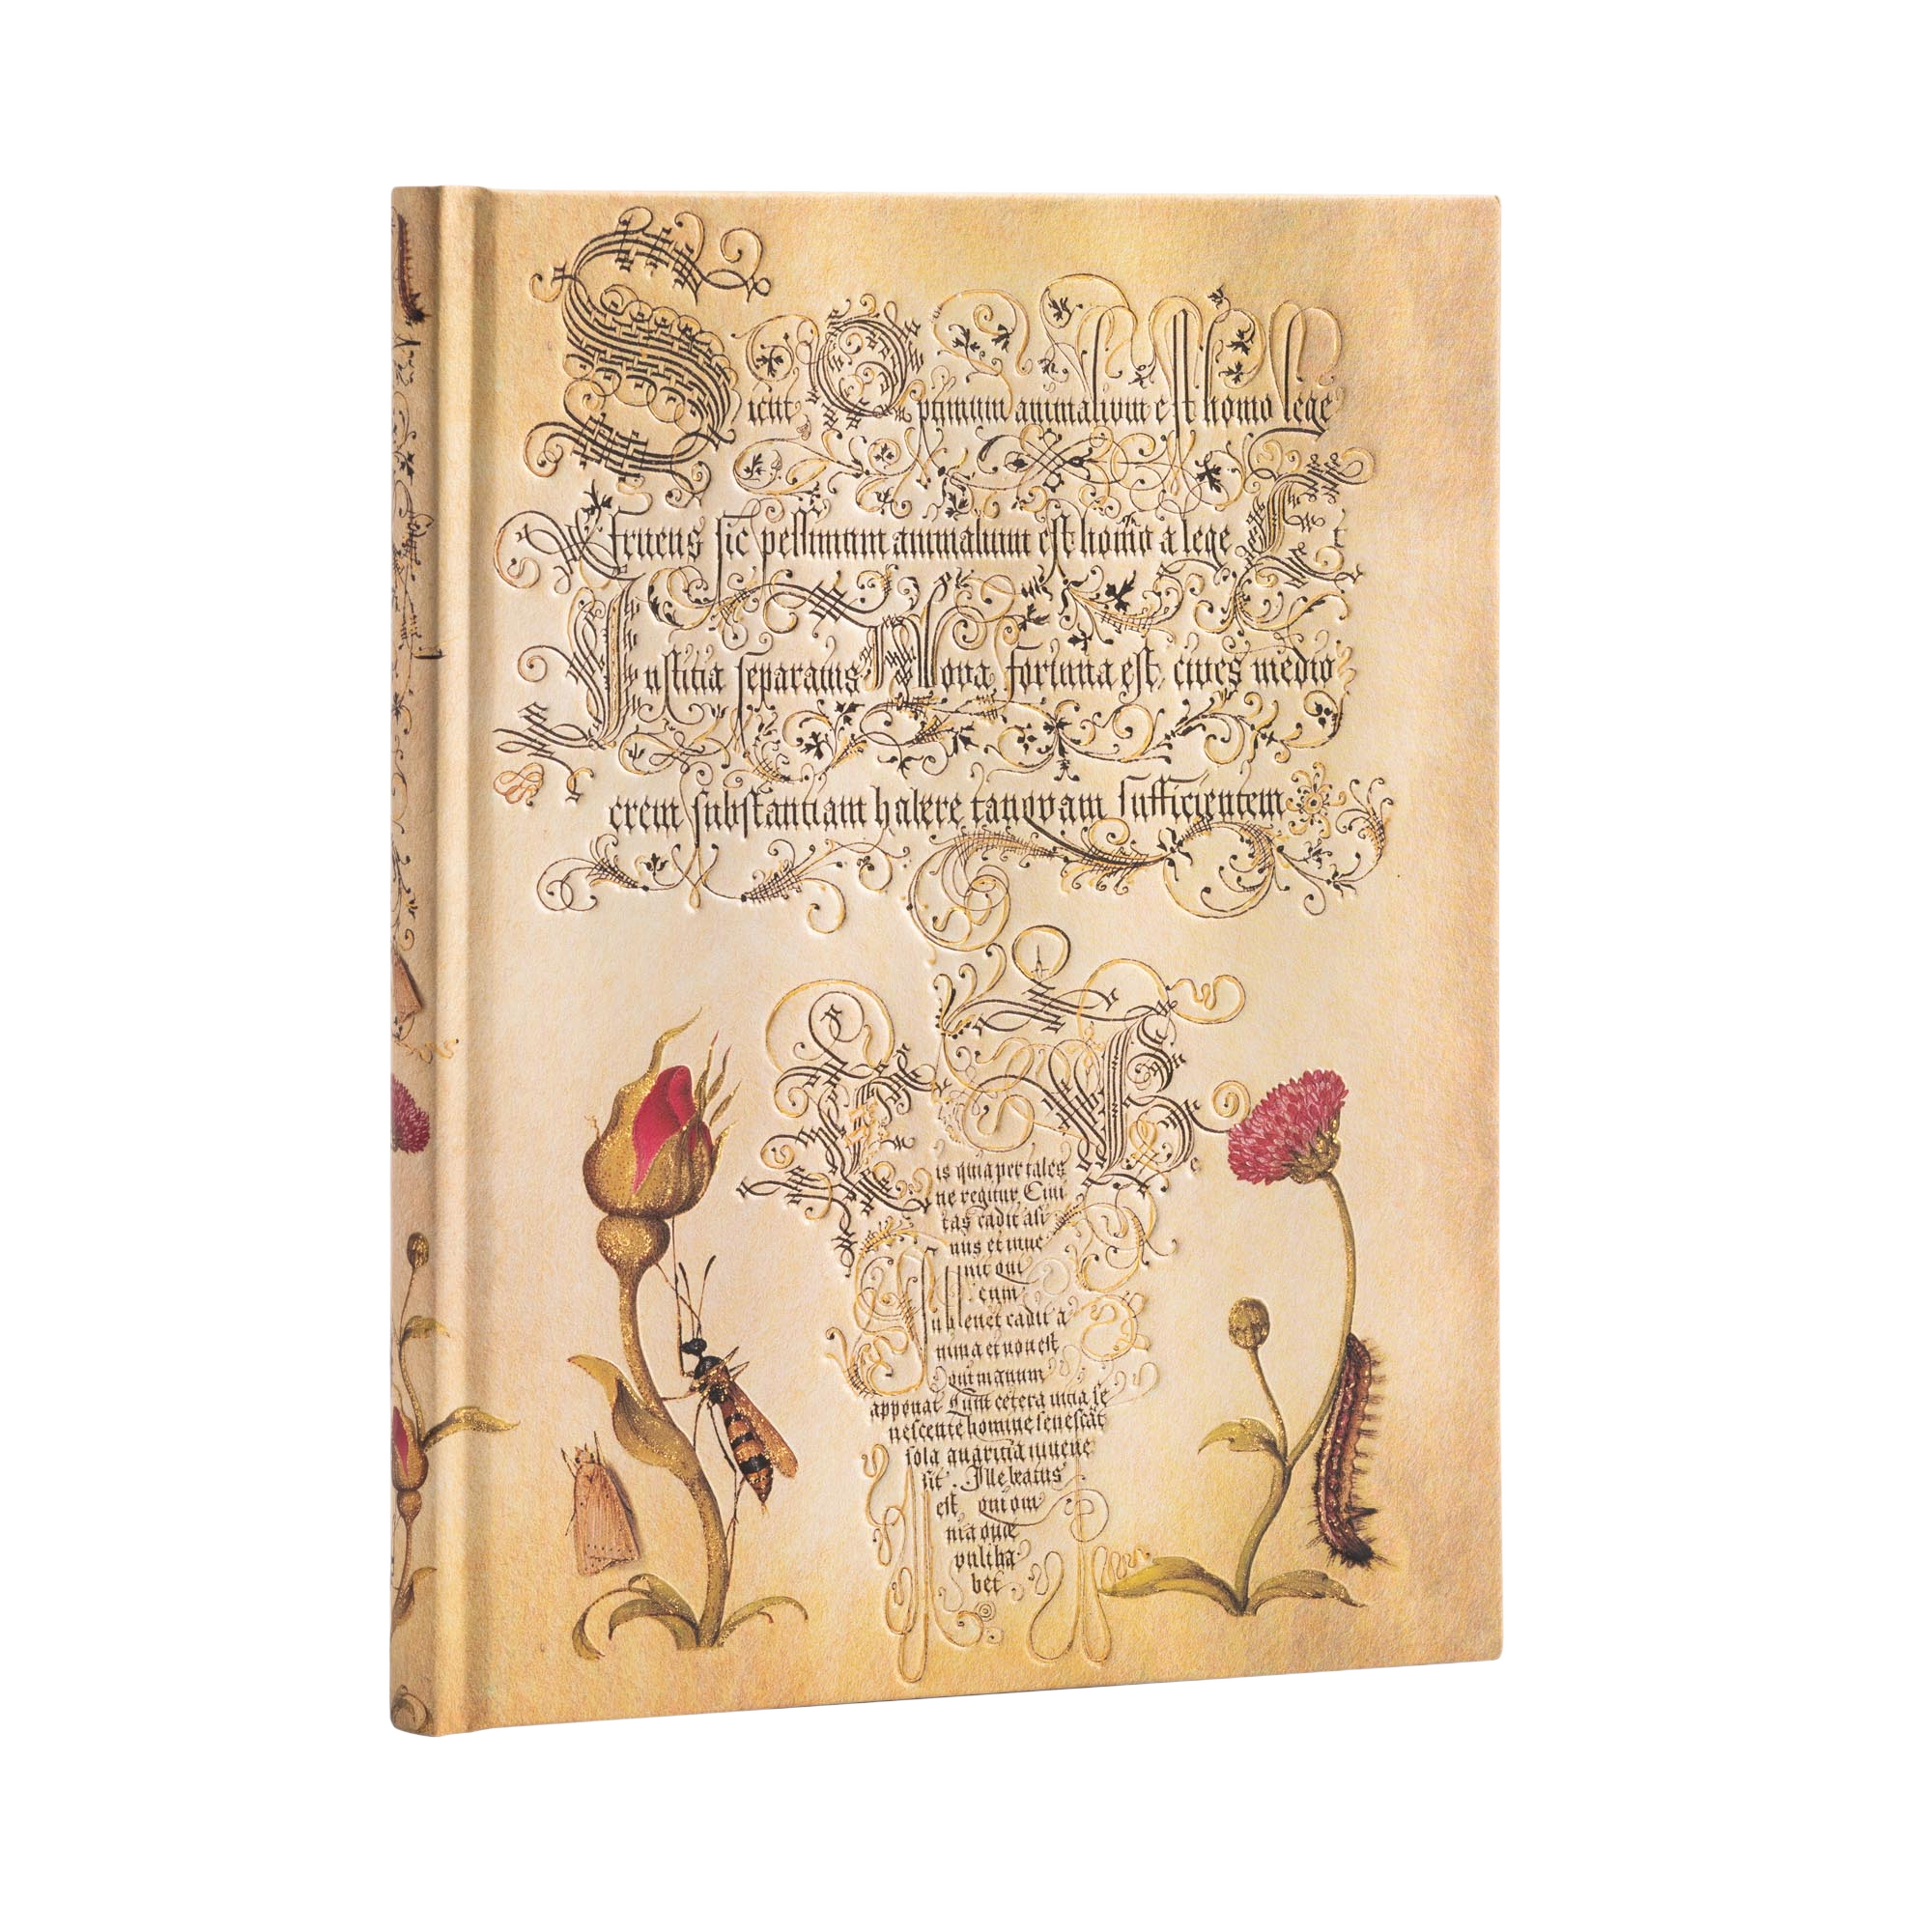 Sicut Optimum animalium est homo lege
fruens sic pessimum animalium est homo a lege Et
Iustitia separatus Nova fortuna est, cives medio
crem substantiam habere tanquam sufficientem
is quia per tales
ne regitur Civi
tas cadit asi
nus et inve
nit qui
sublevet cadit a
nima et non est
qui manum
apponat Cum cetera vitia se
nescente homine senescāt
sola avaritia iuvene
sit. Ille beatus
est, qui om
nia quæ
vult ha
bet